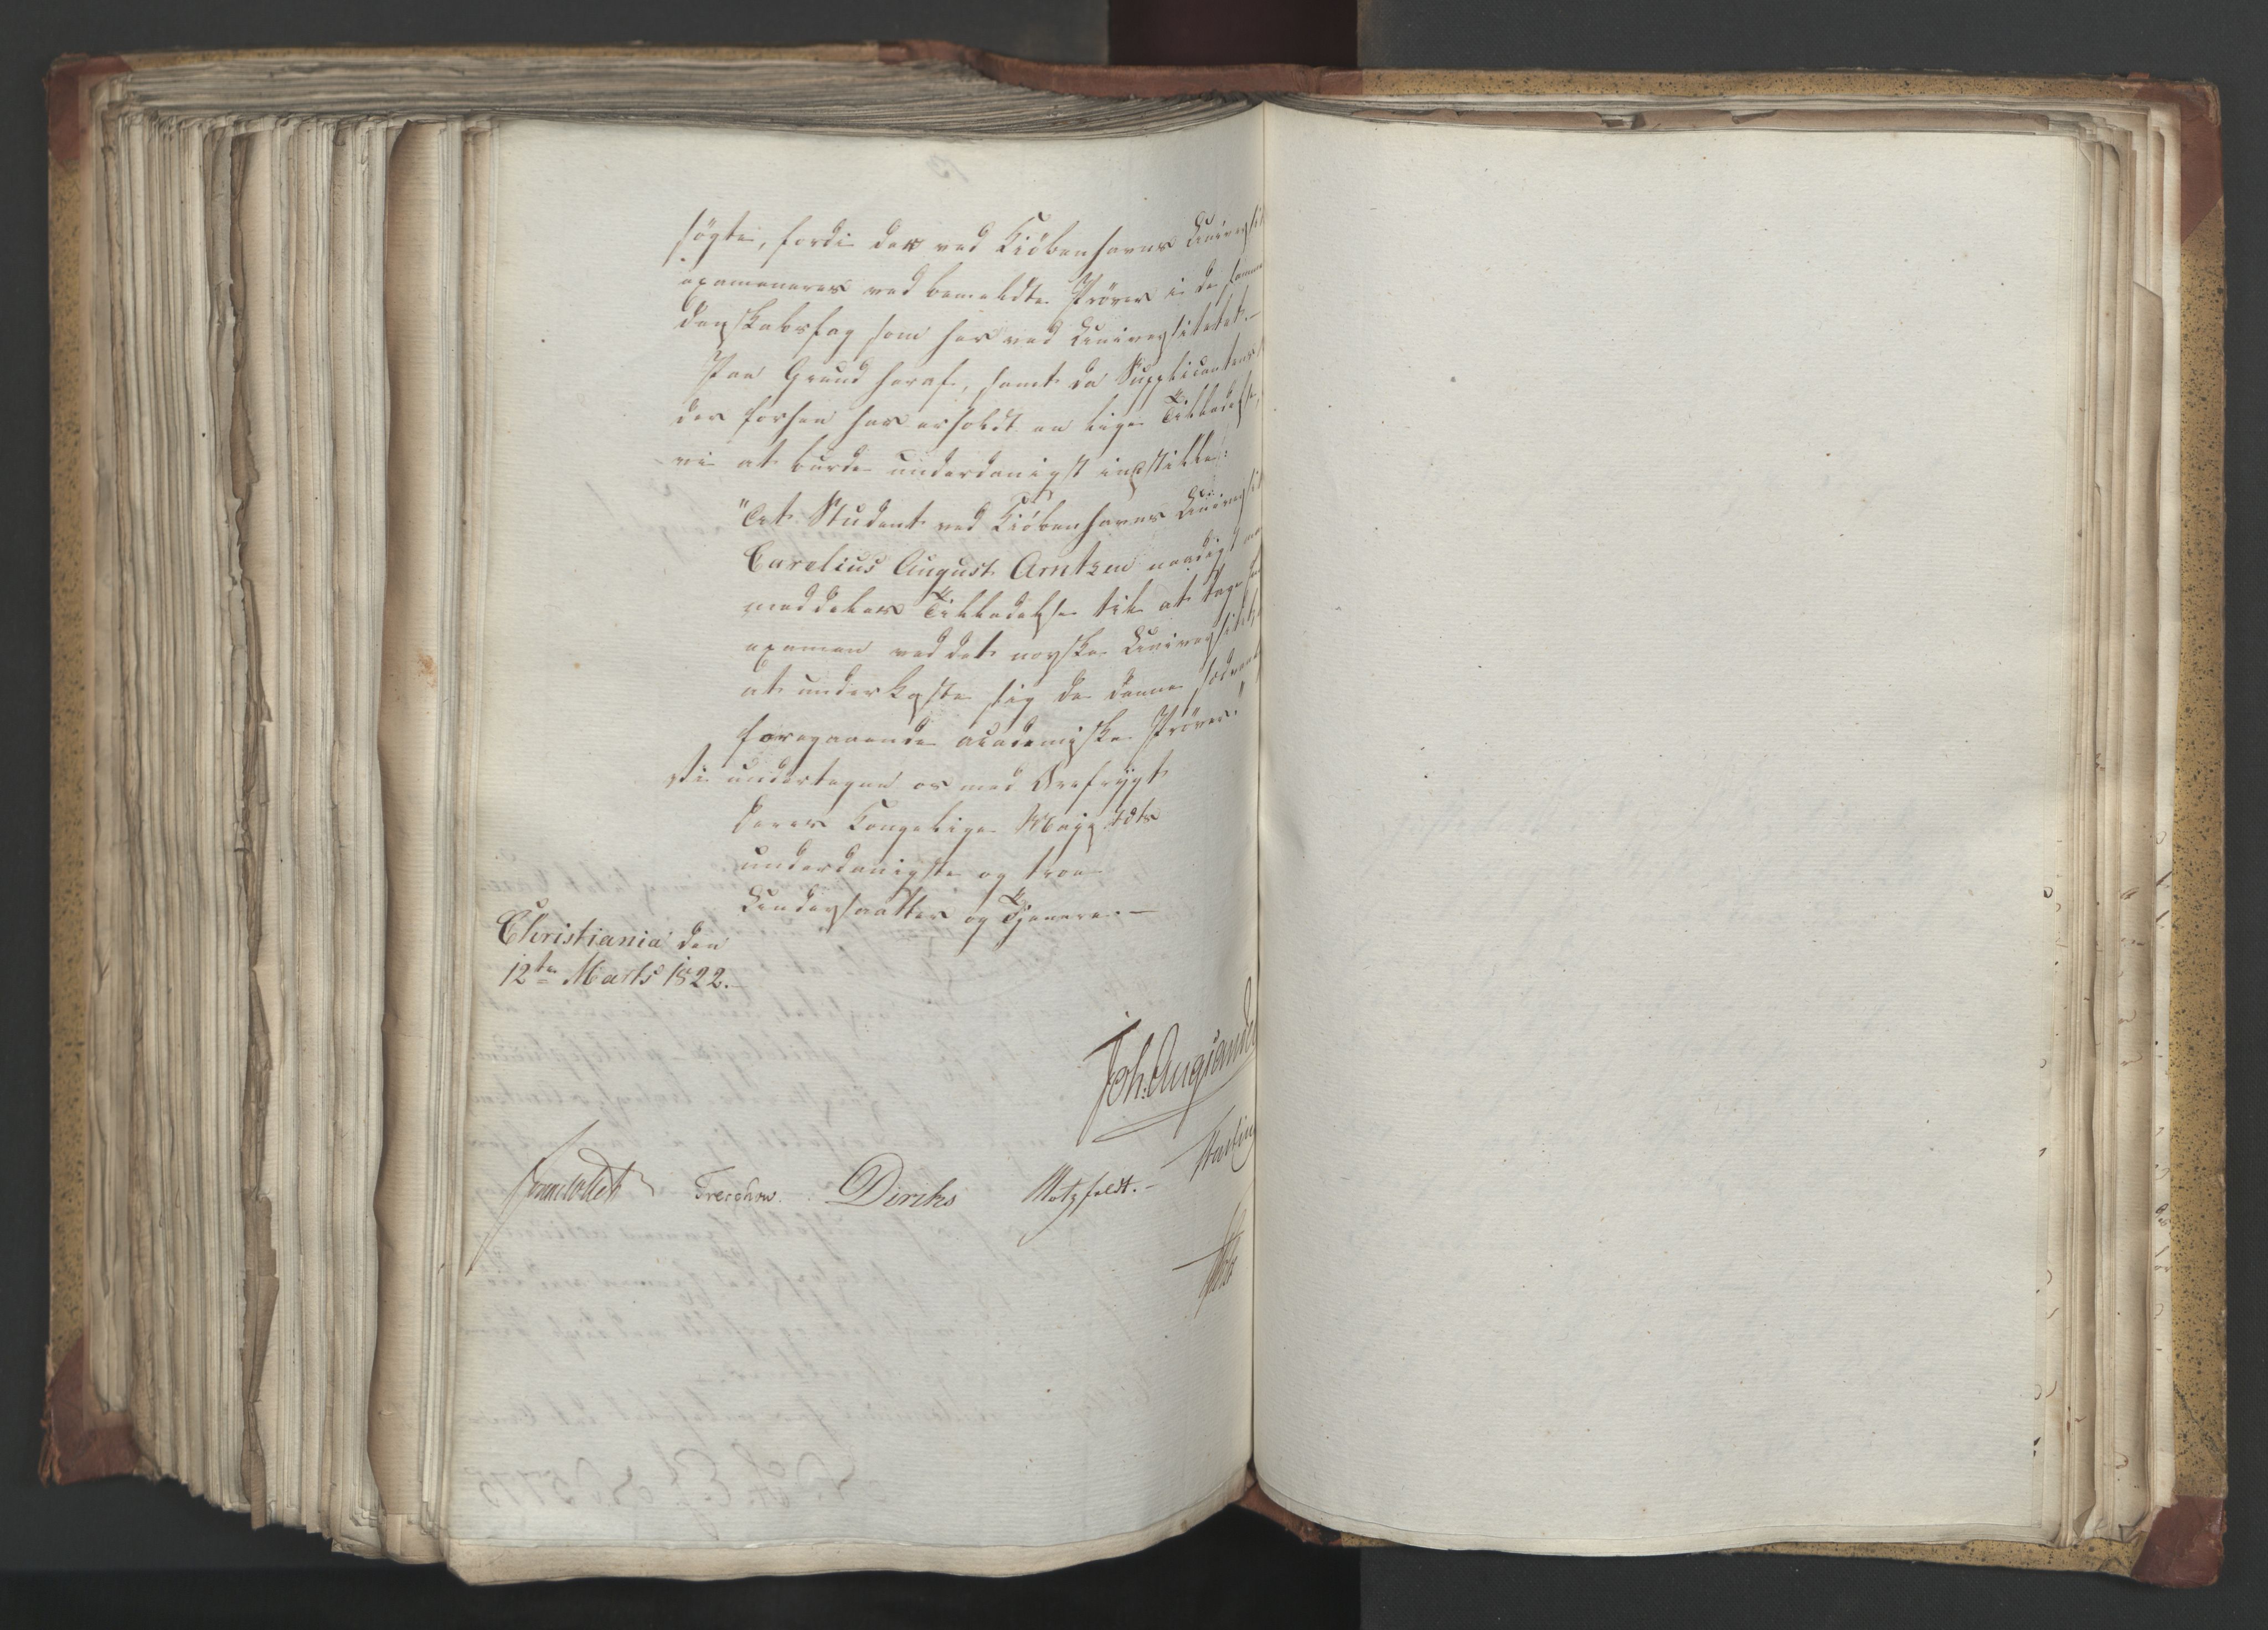 søgte, fordi der ved Kiøbenhavns Universit
examineres ved bemeldte Prøver i de samme
denskabsfag som her ved Universitetet.–
Paa Grund heraf, samt da Supplicanten
der forhen har erholdt en lige Tilladelse,
vi at burde underdanigst indstille:
"At Student ved Kiøbenhavns Universit
Carelius August Arntzen naadigst
meddeles Tilladelse til at tage
examen ved det norske Universitet
at underkaste sig de denne
foregaaende academiske Prøver."
Vi undertegne os med Ærefrygt
Deres Kongelige Majestæts
underdanigste og troe
Undersaatter og Tjenere.–
Christiania den
12te Marts 1822.–
Joh. Aug. Sande
Sommerhielm Treschow. Diriks Motzfeldt.–